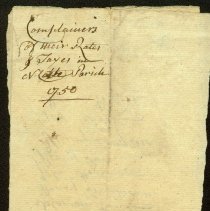 Complainers
of their Rates
& Taxes in
Parish
1750